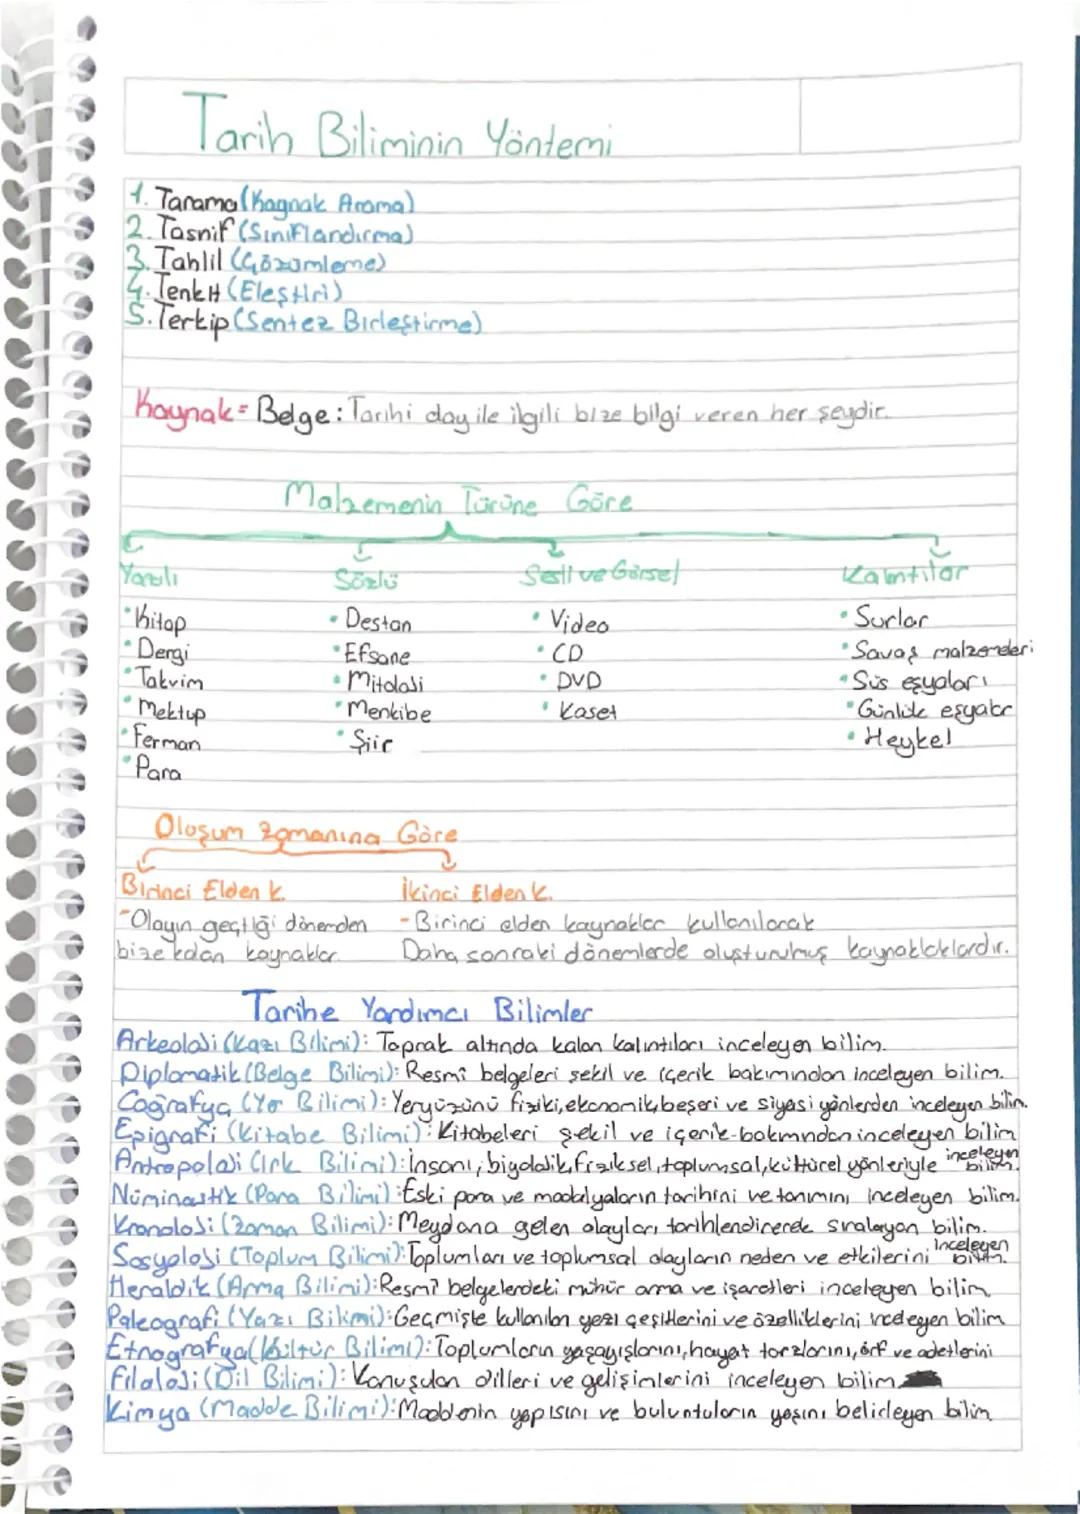 Tarih Biliminin Yöntemi
1. Tarama (Kaynak Arama)
2. Tasnif (Sınıflandırma)
3. Tahlil (Çözümleme)
4. Tenkit (Eleştiri)
5. Terkip (Sentez Birleştirme)
Kaynak = Belge: Tarihi olay ile ilgili bize bilgi veren her şeydir.
Malzemenin Türüne Göre
Yazılı Sözlü Sesli ve Görsel Kalıntılar
• Kitap • Destan • Video • Surlar
• Dergi • Efsane • CD • Savaş malzemeleri
• Takvim • Mitoloji • DVD • Süs eşyaları
• Mektup • Menkibe • Kaset • Günlük eşyalar
• Ferman • Şiir • Heykel
• Para
Oluşum zamanına Göre
Birinci Elden k. İkinci Elden k.
- Olayın geçtiği dönemden - Birinci elden kaynaklar kullanılarak
bize kalan kaynaklar. Daha sonraki dönemlerde oluşturulmuş
Tarihe Yardımcı Bilimler
Arkeoloji (Kazı Bilimi): Toprak altında kalan kalıntıları inceleyen bilim.
Diplomatik (Belge Bilimi): Resmî belgeleri şekil ve içerik bakımından inceleyen bilim.
Coğrafya (Yer Bilimi): Yeryüzünü fiziki, ekonomik, beşeri ve siyasi yönlerden inceleyen bilim.
Epigrafi (Kitabe Bilimi): Kitabeleri şekil ve içerik bakımından inceleyen bilim
Antropoloji (Irk Bilimi): İnsanı, biyolojik, fiziksel, toplumsal, kültürel yönleriyle inceleyen bilim.
Nüminastik (Para Bilimi): Eski para ve madalyaların tarihini ve tanımını inceleyen bilim.
Kronoloji (Zaman Bilimi): Meydana gelen olayları tarihlendirerek sıralayan bilim.
Sosyoloji (Toplum Bilimi): Toplumları ve toplumsal olayların neden ve etkilerini inceleyen bilim.
Heraldik (Arma Bilimi): Resmî belgelerdeki mühür arma ve işaretleri inceleyen bilim
Paleografi (Yazı Bilimi): Geçmişte kullanılan yazı çeşitlerini ve özelliklerini inceleyen bilim
Etnografya (Kültür Bilimi): Toplumların yaşayışlarını, hayat tarzlarını, örf ve adetlerini
Filoloji (Dil Bilimi): Konuşulan dilleri ve gelişimlerini inceleyen bilim
Kimya (Madde Bilimi): Maddenin yapısını ve buluntuların yaşını belirleyen bilim